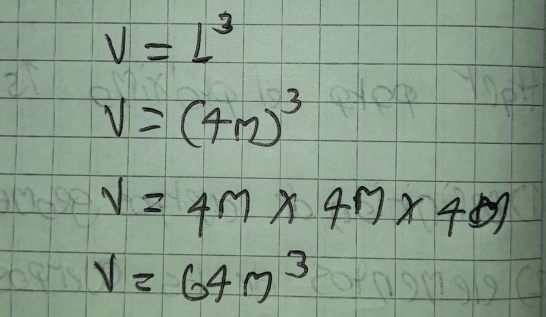 V = L³
V = (4m)³
V = 4m x 4m x 4m
V = 64m³